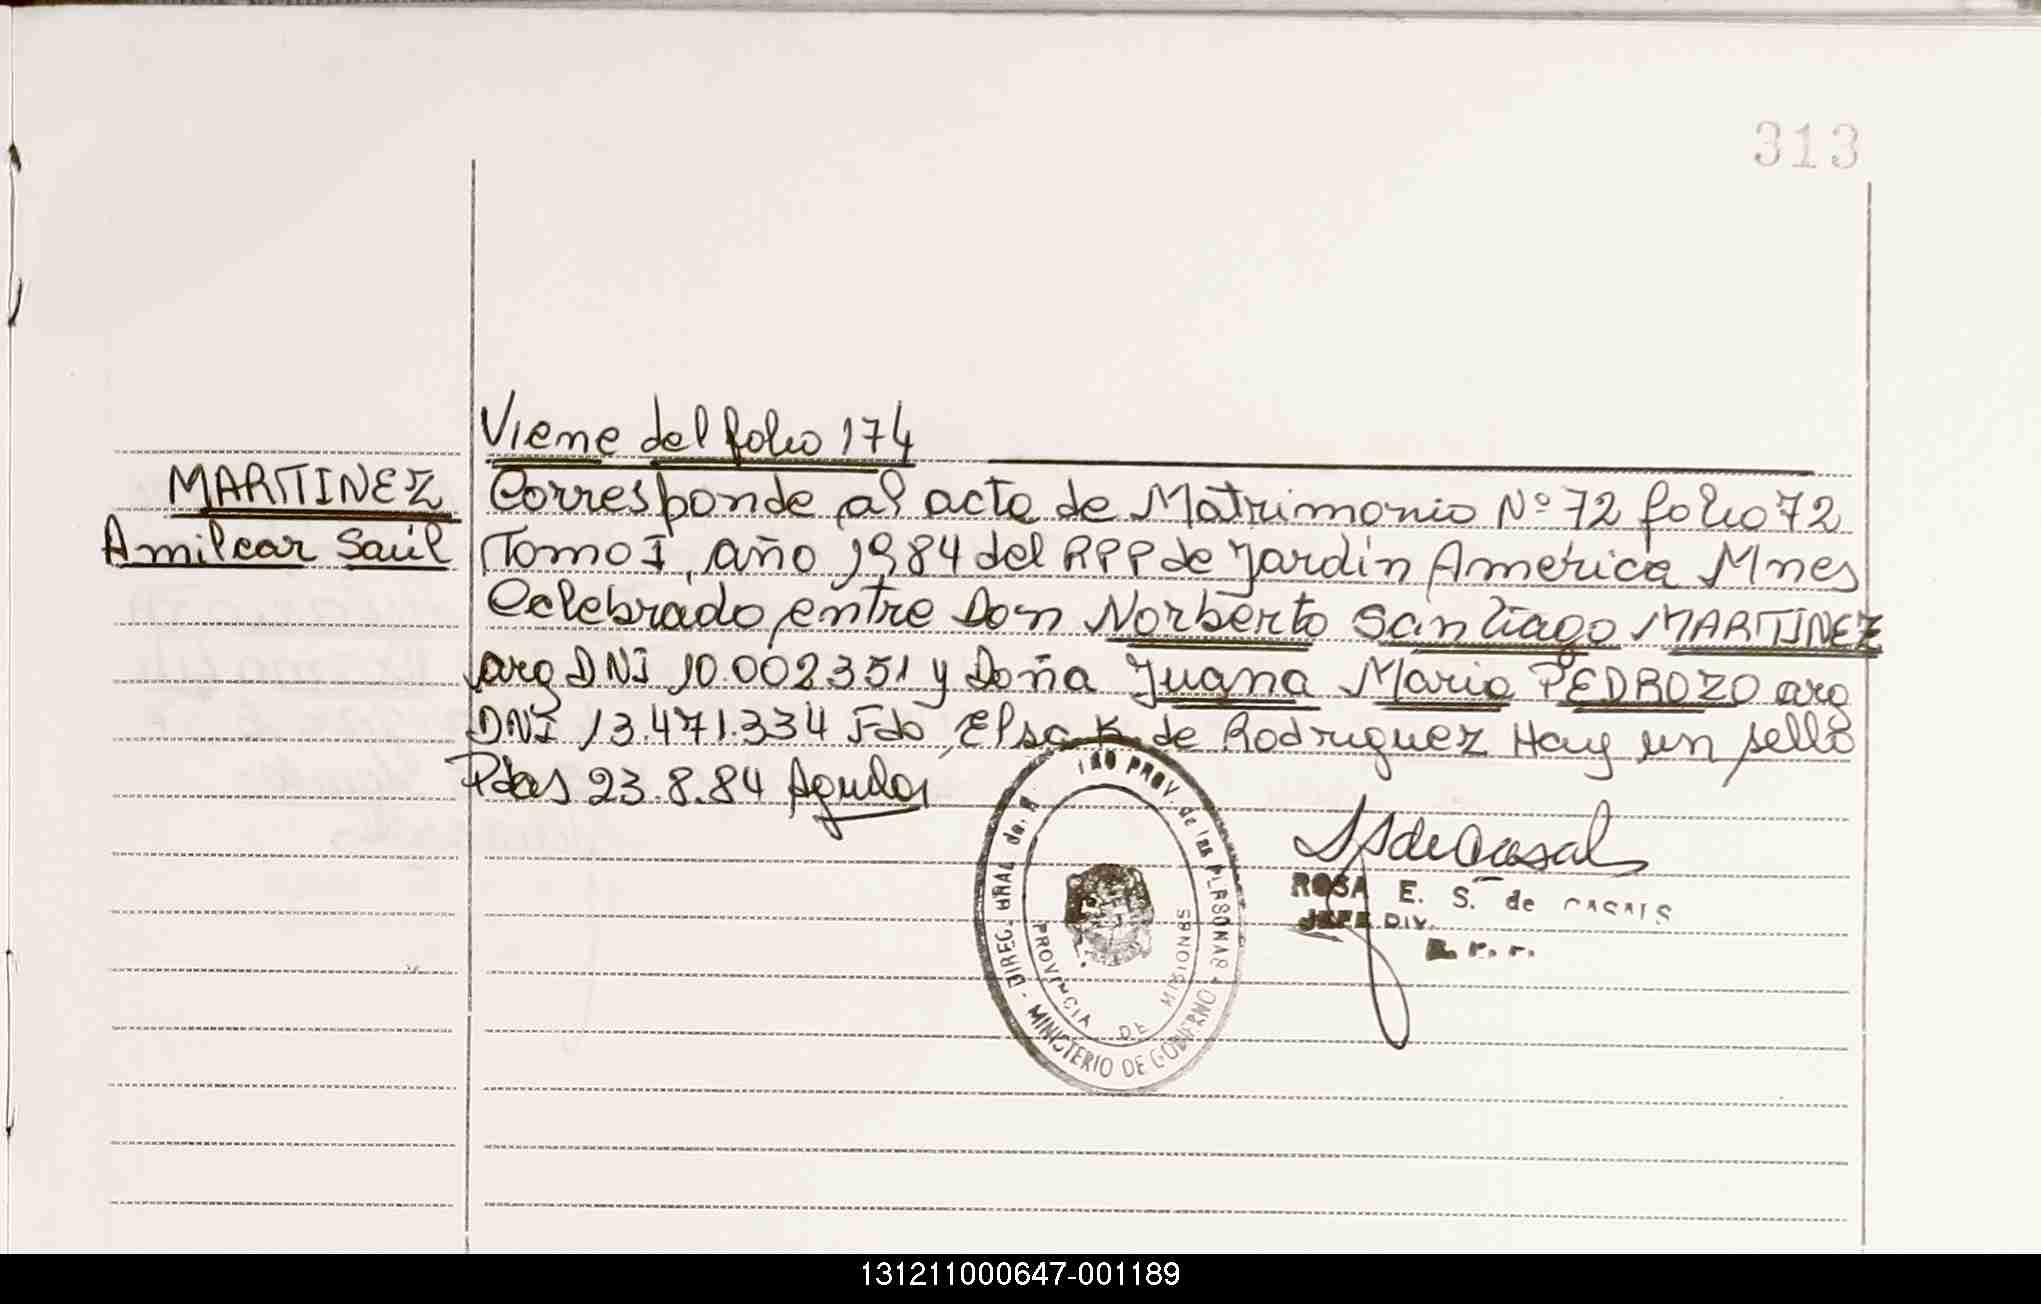 313
Viene del folio 174
MARTINEZ
Amilcar Saúl
Corresponde al acta de Matrimonio Nº 72 folio 72
Tomo I, año 1984 del RPP de Jardín América Mnes
Celebrado, entre Don Norberto Santiago MARTINEZ
arg DNI 10.002351 y Doña Juana Maria PEDROZO arg
DNI 13.471.334 Fdo Elsa K. de Rodriguez Hay un sello
Pdas 23.8.84
DIREC. GRAL de PROV. de las PERSONAS
MINISTERIO DE GOBIERNO
PROVINCIA DE MISIONES
ROSA E. S. de CASALS
JEFE DIV.
131211000647-001189